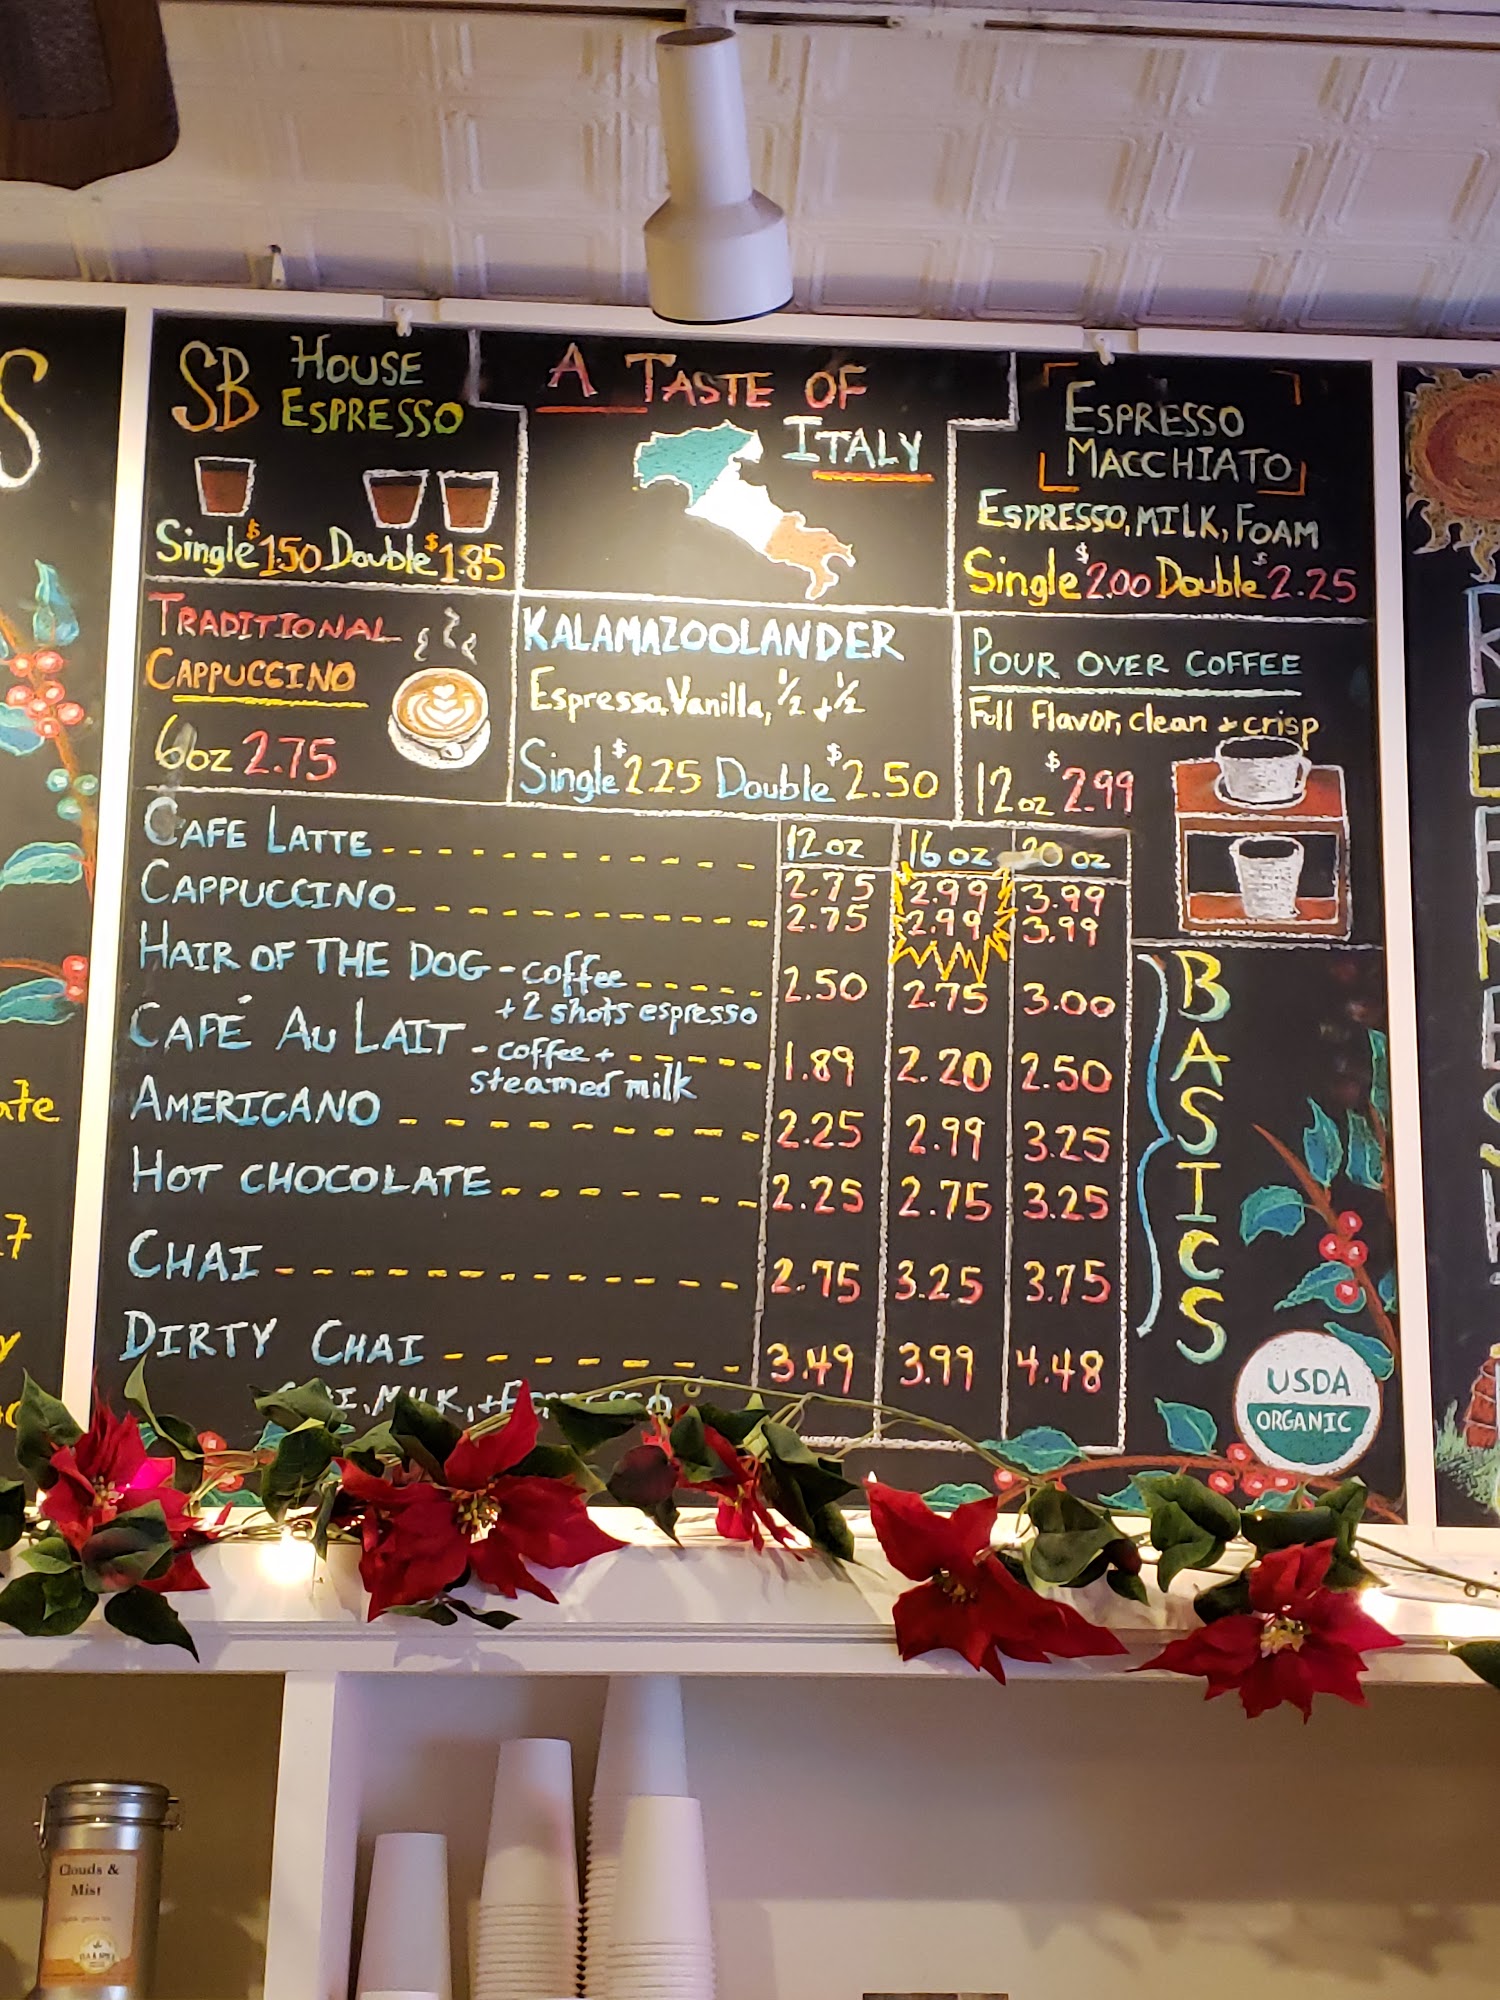 SB HOUSE
ESPRESSO
Single $1.50 Double $1.85
A TASTE OF
ITALY
ESPRESSO
MACCHIATO
ESPRESSO, MILK, FOAM
Single $2.00 Double $2.25
TRADITIONAL
CAPPUCCINO
6oz 2.75
KALAMAZOOLANDER
Espresso, Vanilla, 1/2 + 1/2
Single $2.25 Double $2.50
POUR OVER COFFEE
Full Flavor, clean + crisp
12oz $2.99
12 oz 16 oz 20 oz
CAFE LATTE 2.75 2.99 3.99
CAPPUCCINO 2.75 2.99 3.99
HAIR OF THE DOG - coffee 2.50 2.75 3.00
+ 2 shots espresso
CAFÉ AU LAIT - coffee + 1.89 2.20 2.50
steamed milk
AMERICANO 2.25 2.99 3.25
HOT CHOCOLATE 2.25 2.75 3.25
CHAI 2.75 3.25 3.75
DIRTY CHAI 3.49 3.99 4.48
MILK, +
BASICS
USDA
ORGANIC
Clouds &
Mist